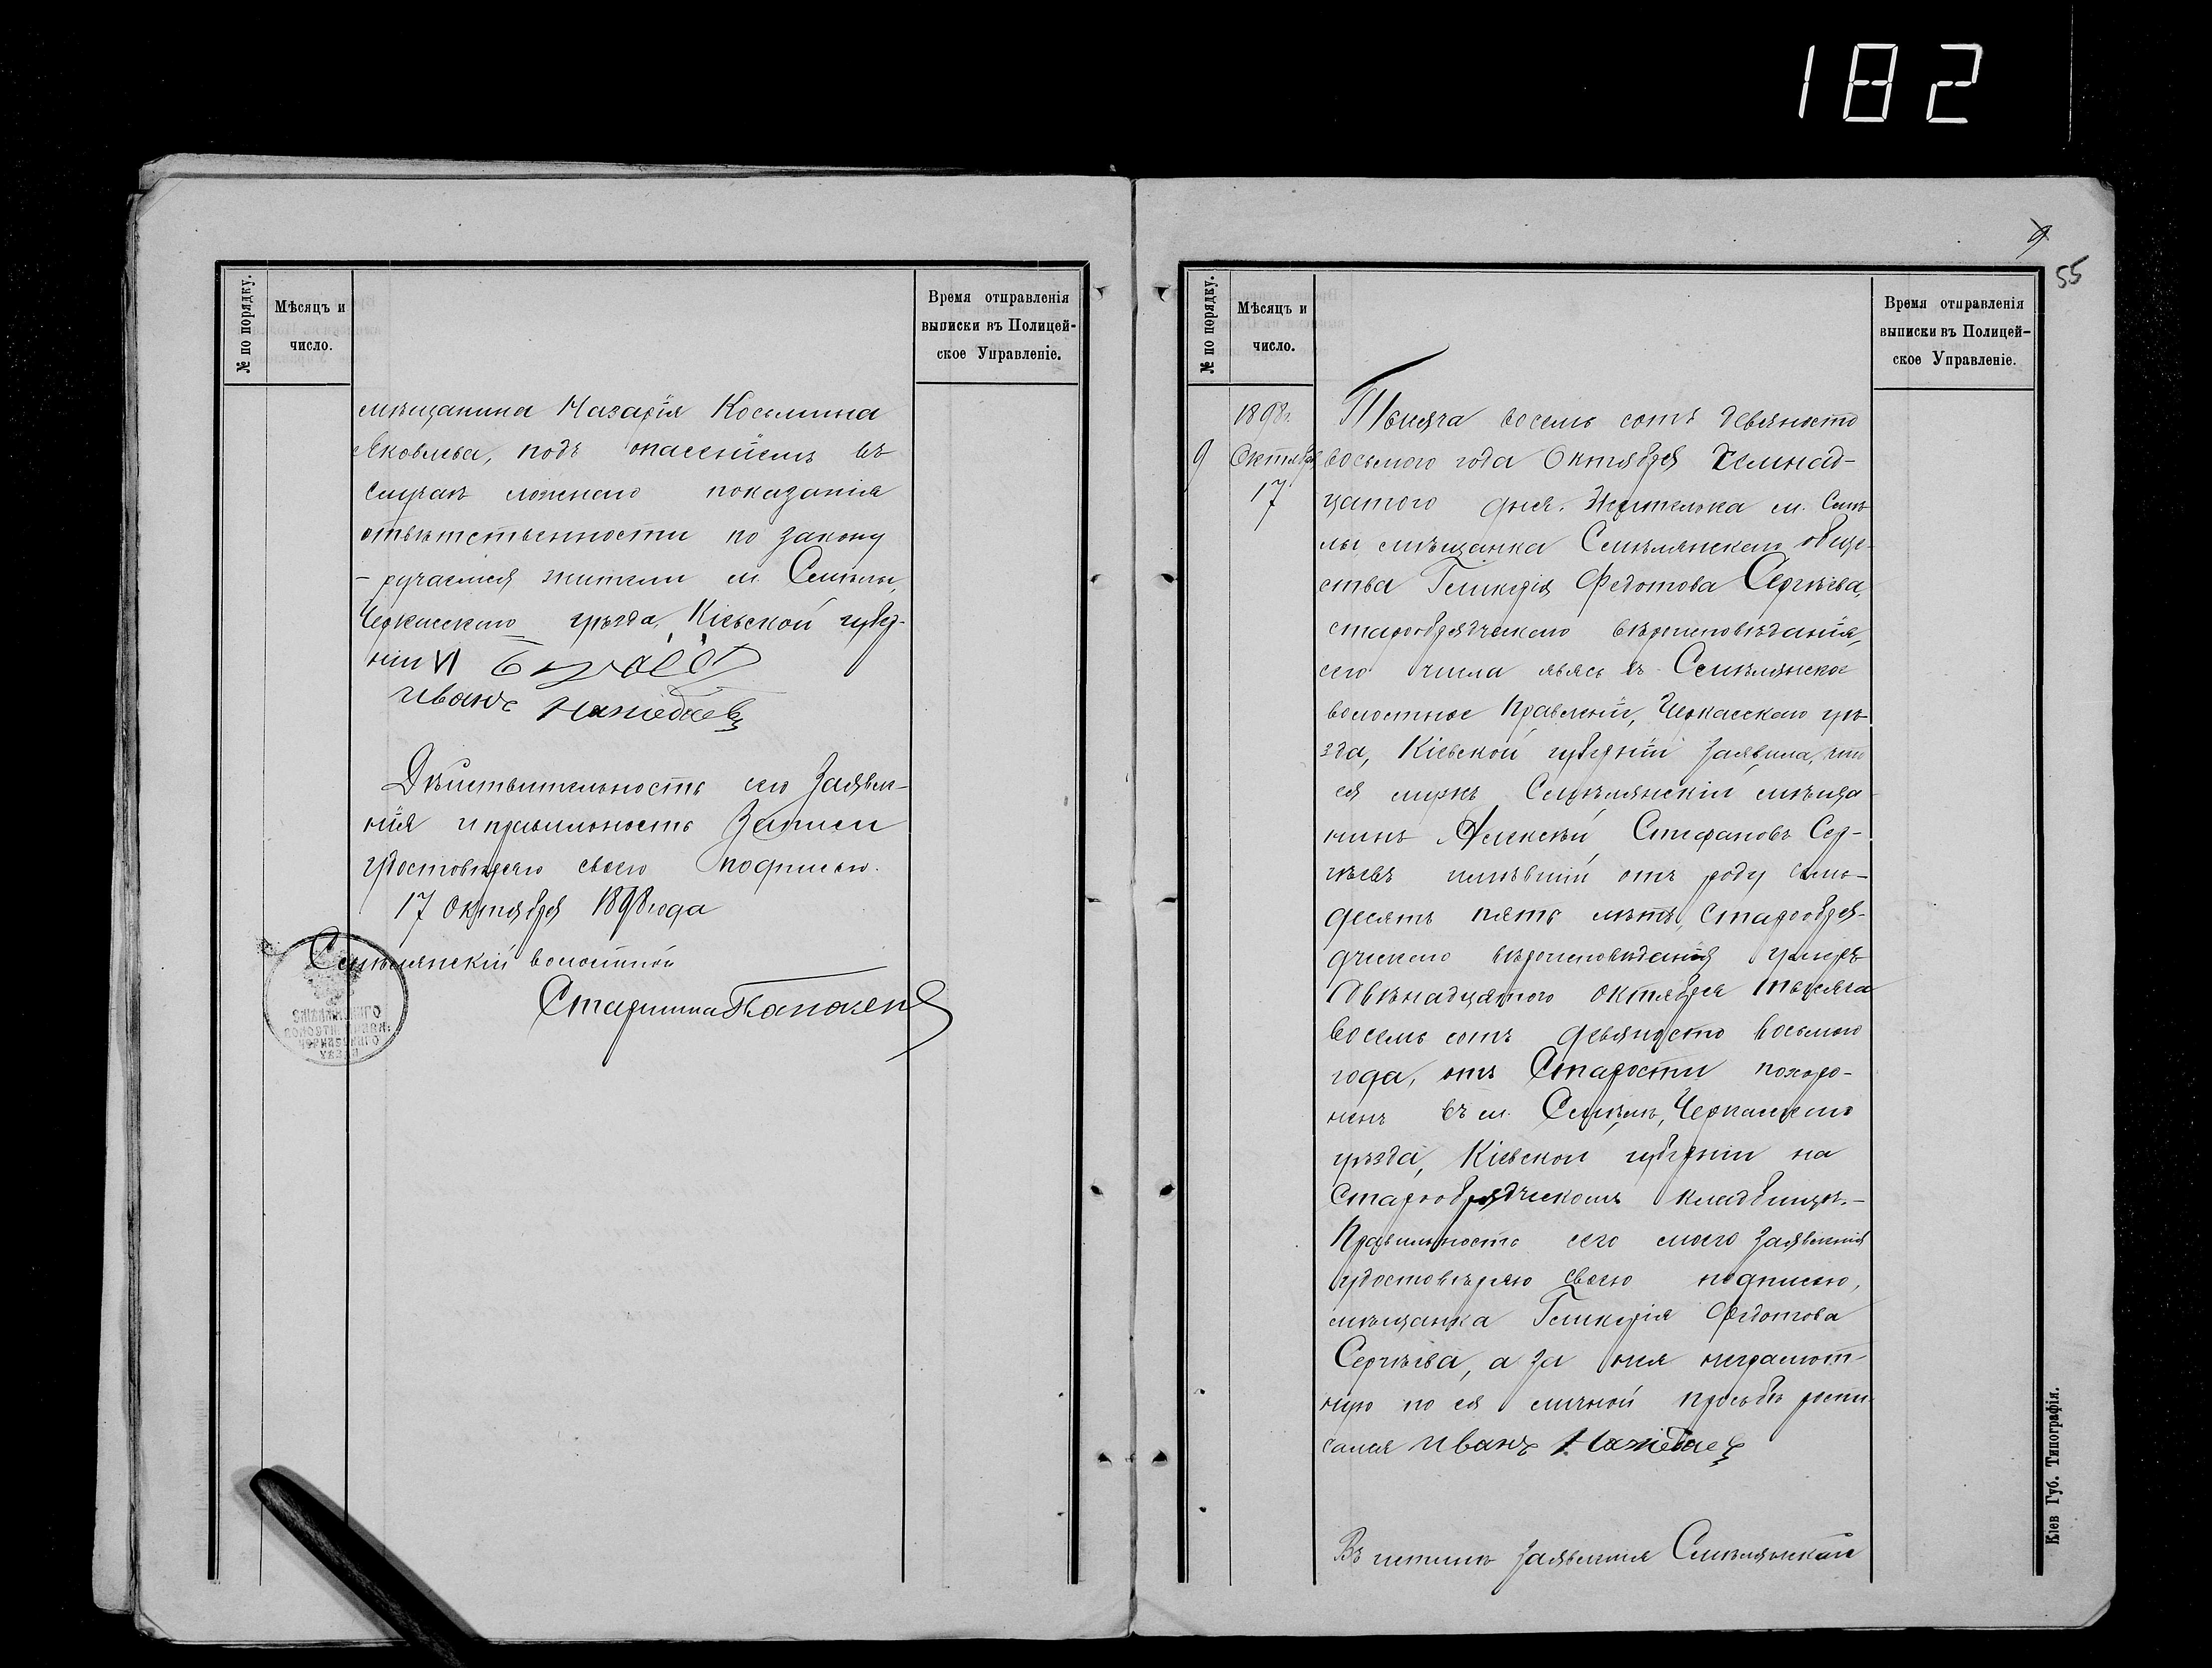 182
№ по порядку.
Мѣсяцъ и
число.
Время отправленія
выписки въ Полицей-
ское Управленіе.
мѣщанина Назарія Косьмина
Яковлева, подъ опасеніемъ въ
случаѣ ложнаго показанія
отвѣтственности по закону
– ручаемся жители м. Смѣлы,
Черкасскаго уѣзда, Кіевской губер-
ніи
Иванъ
Дѣйствительность сего заявле-
нія и правильность записи
удостовѣряю своею подписью.
17 Октября 1898 года
Смѣлянскій волостной
Старшина
СМѢЛЯНСКАГО
ВОЛОСТН. ПРАВЛ.
ЧЕРКАССКАГО
УѢЗДА
9
55
№ по порядку.
Мѣсяцъ и
число.
Время отправленія
выписки въ Полицей-
ское Управленіе.
1898 г.
9 Октября
17
Тысяча восемь сотъ девяносто
восьмого года Октября семнад-
цатого дня. Жителька м. Смѣ-
лы мѣщанка Смѣлянскаго обще-
ства Гликерія Федотова Сергѣева,
старообрядческаго вѣроисповѣданія,
сего числа явясь въ Смѣлянское
волостное Правленіе, Черкасскаго уѣ-
зда, Кіевской губерніи заявила, что
ея мужъ Смѣлянскій мѣща-
нинъ Алексѣй Стифановъ Сер-
гѣевъ имѣвшій отъ роду семь-
десятъ пять лѣтъ, Старообря-
дческаго вѣроисповѣданія умеръ
двѣнадцатого октября тысяча
восемь сотъ девяносто восьмого
года, отъ Старости похоро-
ненъ въ м. Смѣлѣ, Черкасскаго
уѣзда, Кіевской губерніи на
Старообрядческомъ кладбищѣ.–
Правильность сего моего заявленія
удостовѣряю своею подписью,
мѣщанка Гликерія Федотова
Сергѣева, а за нея неграмот-
ную по ея личной просьбѣ роспи-
сался Иванъ
Въ истинѣ заявленія Смѣлянскаго
Кіев Губ. Типографія.